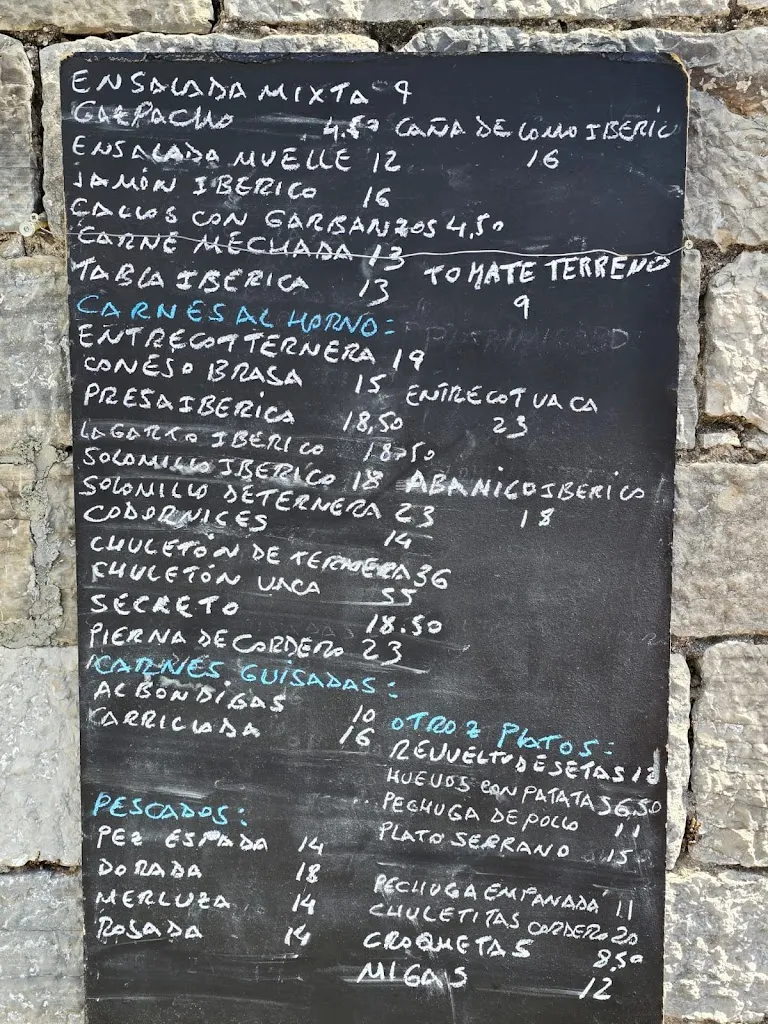 ENSALADA MIXTA 9
GAZPACHO 4.50 CAÑA DE LOMO IBERIC
16
ENSALADA MUELLE 12
JAMÓN IBERICO 16
CALLOS CON GARBANZOS 4,50
CARNE MECHADA 13
TABLA IBERICA 13 TOMATE TERRENO
9
CARNES AL HORNO:
ENTRECOT TERNERA 19
CONEJO BRASA 15 ENTRECOT VACA
23
PRESA IBERICA 18,50
LAGARTO IBERICO 18,50
SOLOMILLO IBERICO 18 ABANICO IBERICO
18
SOLOMILLO DE TERNERA 23
CODORNICES 14
CHULETÓN DE TERNERA 36
CHULETÓN VACA 55
SECRETO 18.50
PIERNA DE CORDERO 23
CARNES GUISADAS:
ALBONDIGAS 10
CARRILLADA 16
OTROZ PLATOS:
REVUELTO DE SETAS
HUEVOS CON PATATAS 6.50
PECHUGA DE POLLO 11
PLATO SERRANO 15
PESCADOS:
PEZ ESPADA 14
DORADA 18
MERLUZA 14
ROSADA 14
PECHUGA EMPANADA 11
CHULETITAS CORDERO 20
CROQUETAS 8,50
MIGAS 12